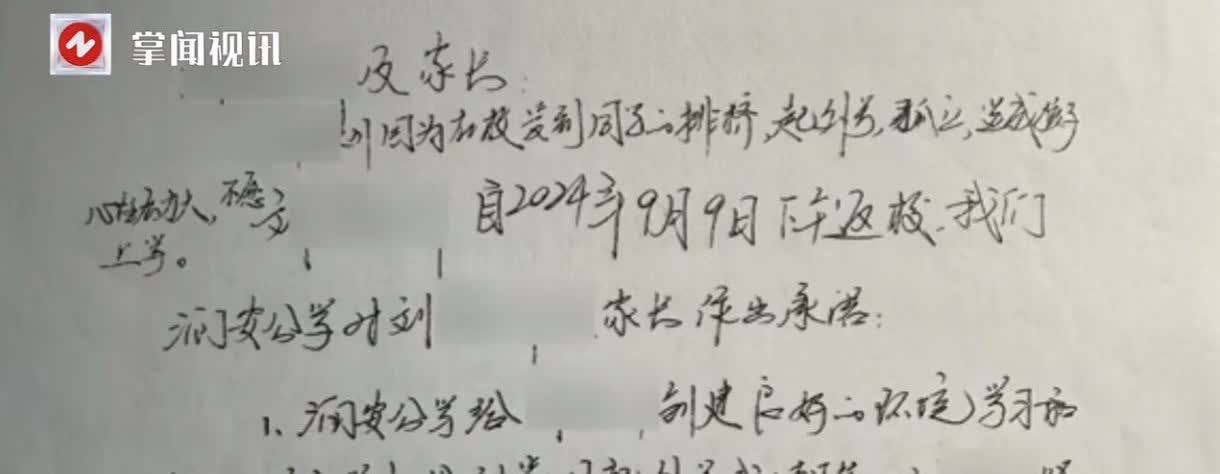 掌闻视讯
及家长:
因为在校受到同学的排挤,起外号,孤立,造成
心理压力大,不愿 自2024年9月9日下午返校.我们
上学。
润安公学对刘 家长作出承诺:
1、润安公学给 创建良好的环境学习和